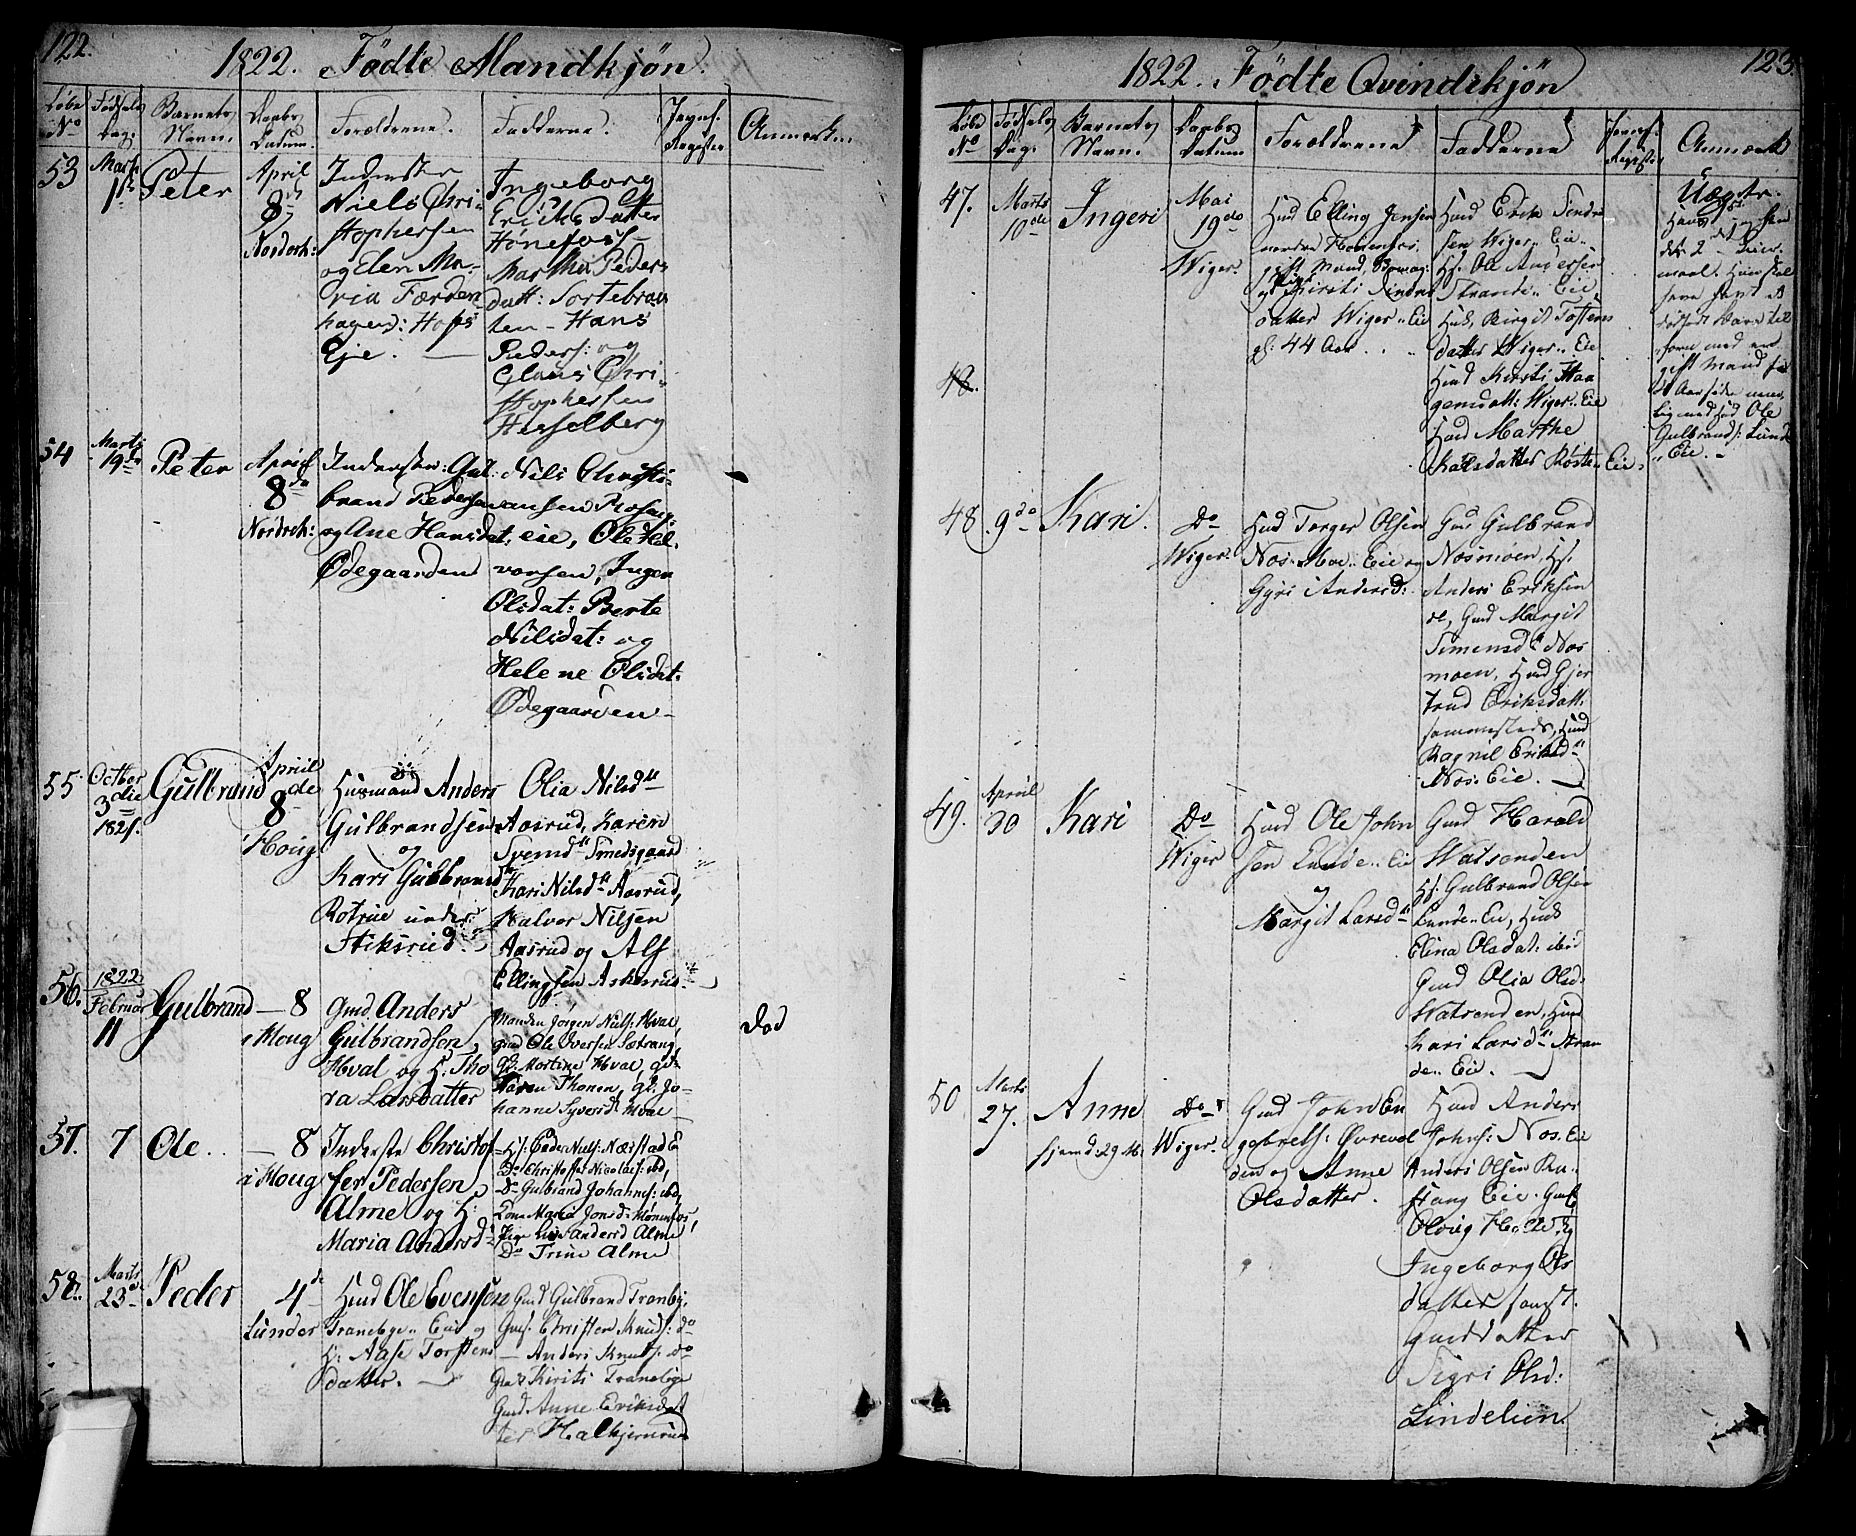 122.
1822. Fødte Mandkjøn.
Løbe No
Fødsels Dag.
Barnets Navn.
Daabs Datum.
Forældrene.
Fadderne.
Jevnf. Register
Anmærk.
53
Marts
1ste
Peter
April
8de
Nordrek:
Inderster
Niels Chri-
stophersen
og Elen Ma-
ria Færden-
hagen: Hofs
Eje.
Ingeborg
Ericksdatter
Hønefos-
Marthe Peders
datt: Sortebraa
ten - Hans
Peders: og
Claus Chri-
stophersen
Hesselberg
54
Marts
19de
Peter
April
8de
Nordrek:
Inderster: Gul-
brand Pedersen
og Ane Hansdat:
Ødegaarden
Nils Christi-
ansen
eie, Ole Hal-
vorsen, Inger
Olsdat: Berte
Nilsdat: og
Helene Olsdat:
Ødegaarden-
55
Octbor
3die
1821.
Gulbrand
Apriil
8de
i Houg
Husmand Anders
Gulbrandsen
og
Kari Gulbrandsd
Rotrue under
Stiksrud.
Olia Nilsd
Aasrud, Karen
Svensd Smedsgaard
Kari Nilsd Aasrud,
Halvor Nilsen
Aasrud og Alf
Ellingsen Askerud.
56.
1822
Februar
11
Gulbrand
— 8
i Houg
Gmd Anders
Gulbrandsen,
Hval og H. Tho
ra Larsdatter
Manden Jørgen Niels: Hval,
gmd Ole Iversen Sætrang,
gl. Mortine Hval, gl.
Karen Thonen, gl. Jo-
hanne Syversd Hval
Død
57.
7
Ole
— 8
i Houg
Inderste Christof-
fer Pedersen,
Alme og H:
Maria Andersd
Hs: Peder Niels: Nærstad E
Do Christoffer Nicolais: ibd,
Do Gulbrand Johannes: ibd,
Kone Maria Jonsd Hønenfos,
Pige Lise Andersd Alme,
Do Trine Alme
58.
Marts
23de
Peder
4de
Lunder
Hmd Ole Evensen
Tranebye.. Eie og
H: Aase Torstens
datter.
Gmd Gulbrand Tranby,
Gms. Christen Knuds: do
— Anders Knuts: do
Gmk Kirsti Tranebye
Gmd Anne Eriksdat
ter Halkjernrud
123.
1822. Fødte Qvindekjön
Løbe No
Fødsels Dag.
Barnets Navn.
Daabs Datum
Forældrene
Fadderne
Jevnf: Register
Anmærk
47.
Marts
10de
Ingeri
Mai
19de
Wiger.
Hmd Elling Jensen
nordre
gift Mand,
og Pige Kirsti Sindre
datter Wiger.. Eie
gl: 44 Aar
Hmd Erik Sindre
sen Wiger.. Eie
Hs. Ole Andersen
Strande.. Eie
Hmk, Birgit Tostens
datter Wiger.. Eie
Hmd Kirsti Haa
gensdatt: Wiger.. Eie
Hmd Marthe
Karlsdatter Røste.. Eie.
Uægte.
det 2
maal. Hun skal
have
dødfødt Barn til
forn med en
gift Mand for
Aar siden nem-
lig med sød Ole
Gulbrands: Lunde
.. Eie.
48.
48.
9de
Kari.
Do
Wiger.
Hmd Torger Olsen
Nos. Moe.. Eie og
Gjri Andersd:
Gmd Gulbrand
Nosmoen, Hs.
Anders Eriksen
do, Gmd Margit
Simensd Nos
moen, Hmd Gjer
trud Eriksdatt:
sammesteds, Hmd
Ragnil Eriksd
Nos: Eie.
49.
Apriil
30
Kari
Do
Wiger
Hmd Ole John
sen Lunde.. Eie
og
Margit Larsd
Gmd Harald
Watsenden
Hs: Gulbrand Olsen
Lunde.. Eie, Hmds
Elina Olsdat: ibid
Gmd Olia Olsd:
Watsenden, Hmd
Kari Larsd Stran
de.. Eie.
50
Marts
27.
Anne
hjemd 29 M.
Do
Wiger.
Gmd John En
gebrets: Øvrevol
den og Anne
Olsdatter.
Hmd Anders
Johns: Nos. Eie
Anders Olsen Ru..
stang Eie. Gmk
Olaug Hollerig
Ingeborg Ols
datter samst.
Gmddatter
Sigri Olsd:
Lindelien.